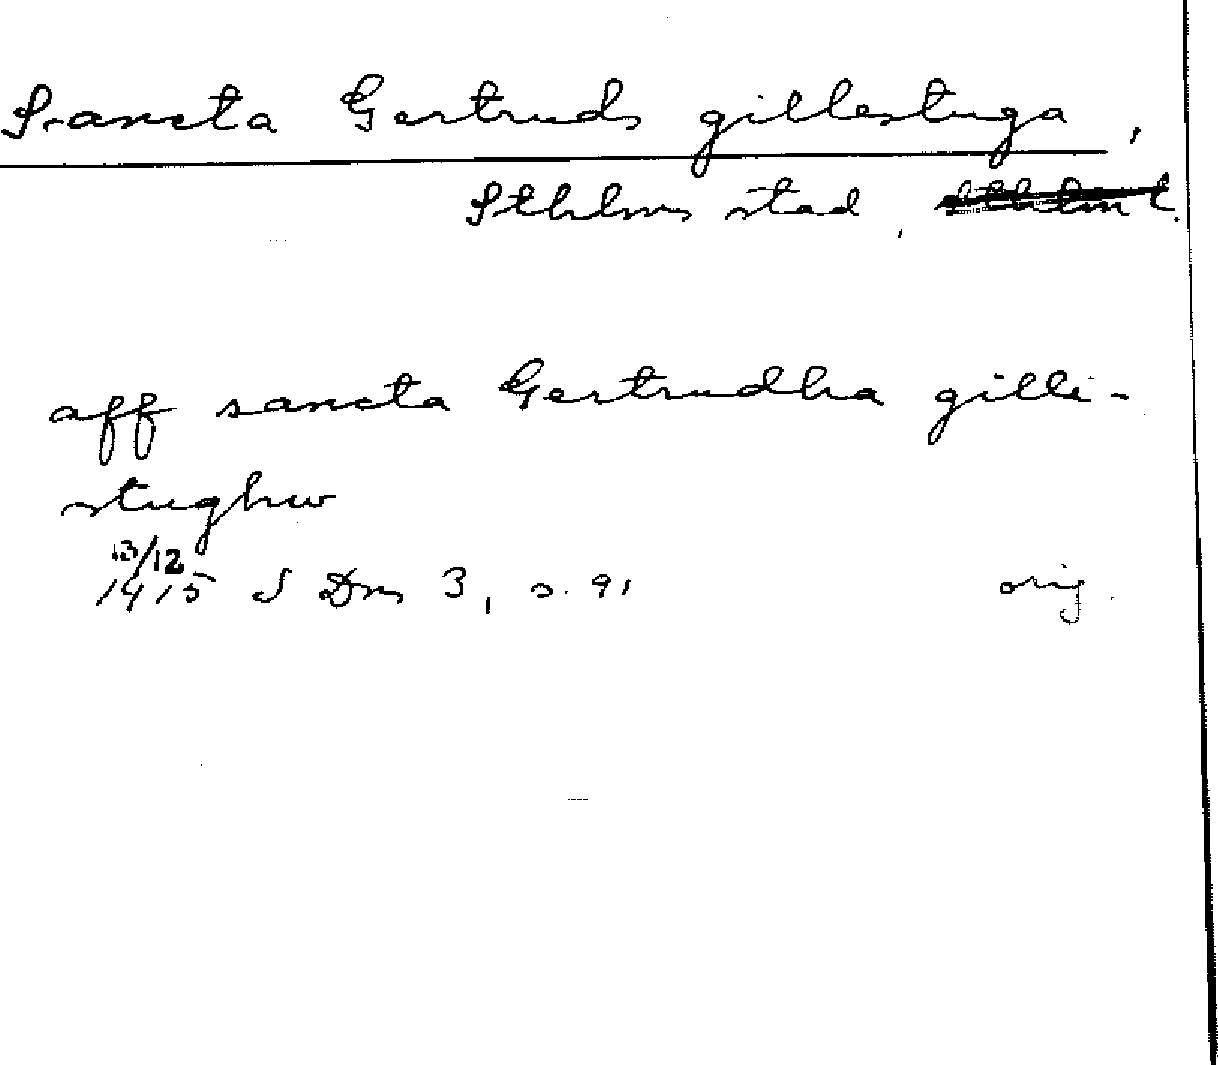 Sancta Gertruds gillestuga,
Sthlms stad,
aff sancta Gertrudha gilli-
stughw
13/12
1415 S Dns 3, s. 91 orig.